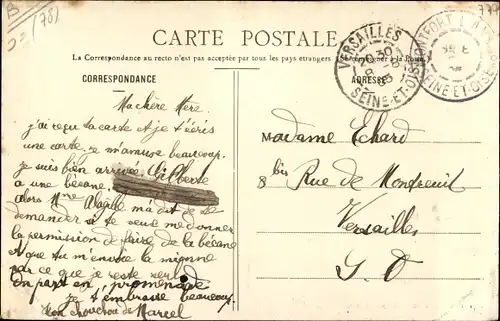 B
D = (78)
777
CARTE POSTALE
La Correspondance au recto n'est pas acceptée par tous les pays étrangers
CORRESPONDANCE
ADRESSE
VERSAILLES
SEINE-ET-OISE
MONTFORT L'AM
SEINE-ET-OISE
Ma chère Mère
j'ai reçu ta carte et je t'écris
une carte. je m'amuse beaucoup.
je suis bien arrivée Gilberte
a une bécane.
alors Mme m'a dit de te
demander si tu veux me donner
la permission de faire de la bécane
et que tu m'envoie la mienne
par ce que je reste seul
On part en promenade
je t'embrasse beaucoup.
ton chouchou de Marcel
Madame Echard
8 bis Rue de Montreuil
Versailles
S. O